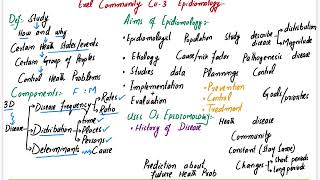 Exel Community Ch-3 Epidemiology:-
Def: Study
How and why
Certain Health States/events
Certain Group of Peoples
Control Health Problems
Components:- F : M
3D
Disease
Disease frequency
Rates
Ratio
Distribution
time
Places
Persons
Determinants
Cause
Aims of Epidemiology:-
Epidemiologist Population study describe disease
distribution
Magnitude
Etiology Causes/risk Factor Pathogenesis disease
Studies data Plannings Control
Implementation
Evaluation
Prevention
Control
Treatment
Goals/priorities
Uses Of Epidemiology:-
History of Disease
Health disease
Community
Constant (Stay same)
Changes
Short periods
long periods
Prediction about
future Health Prob